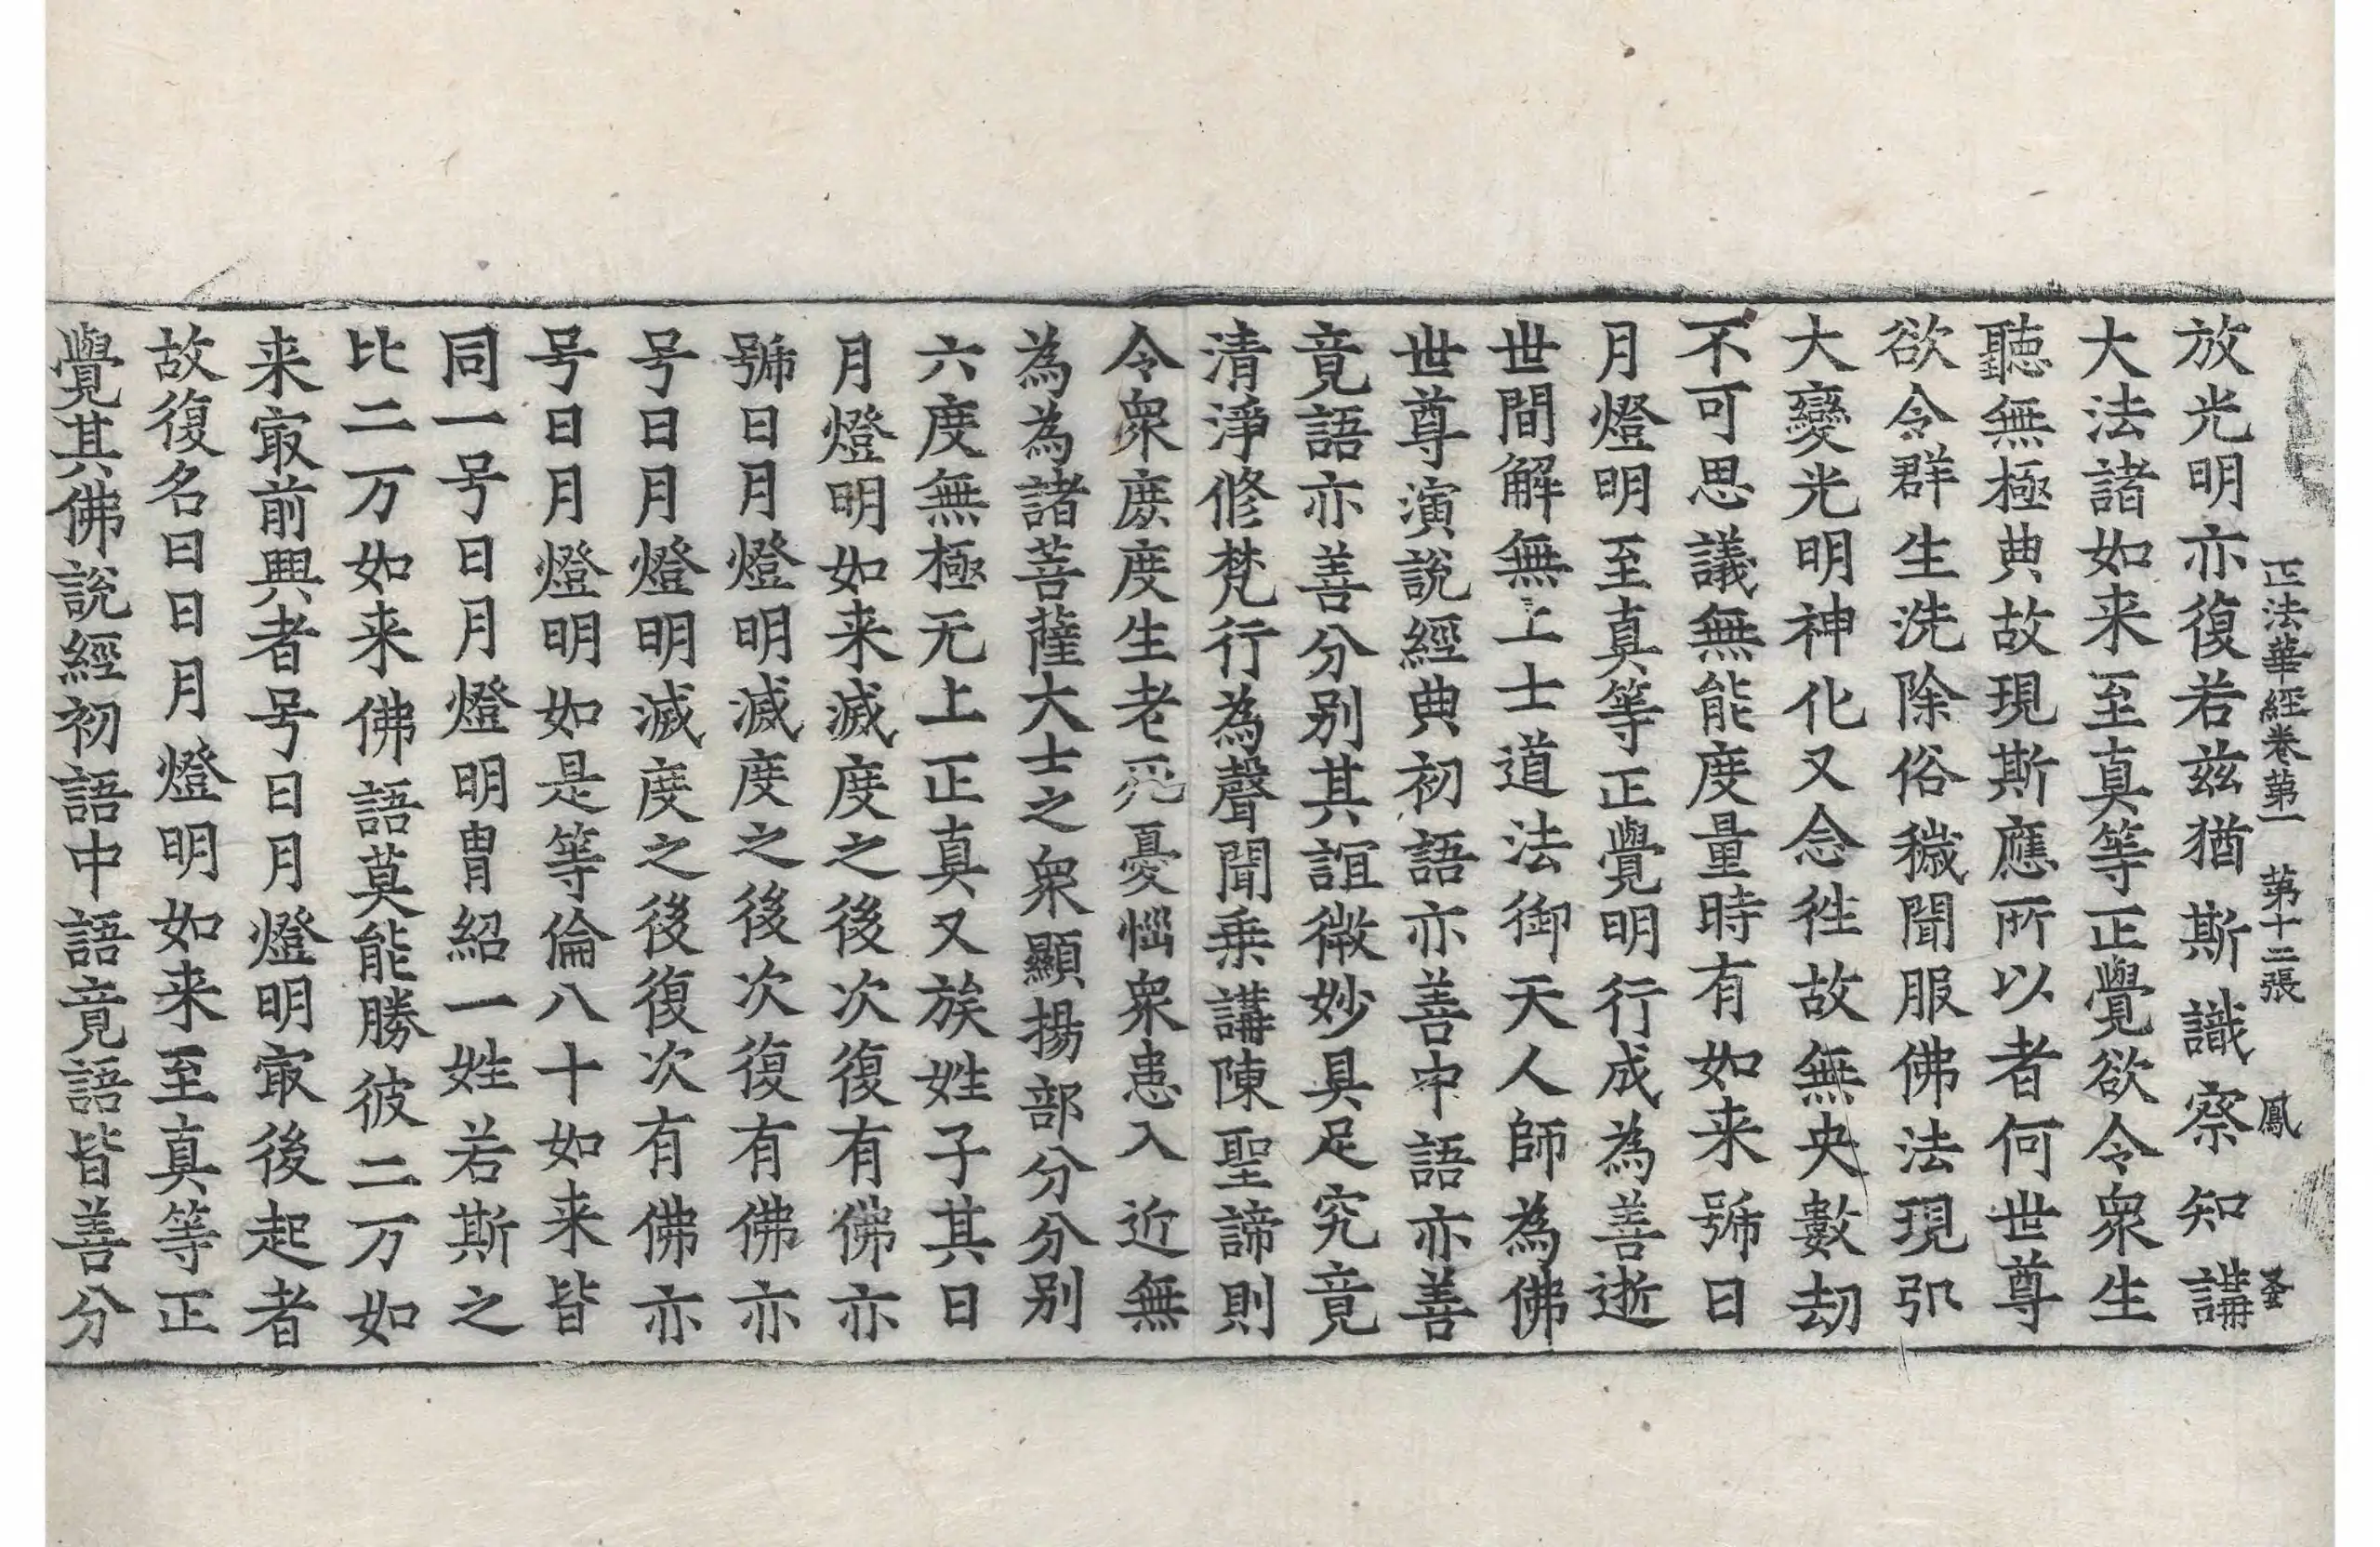 正法華經卷第一　第十二張　鳳
放光明亦復若兹猶斯識察知講
大法諸如来至真等正覺欲令衆生
聽無極典故現斯應所以者何世尊
欲令群生洗除俗穢聞服佛法現弘
大變光明神化又念徃故無央數劫
不可思議無能度量時有如来號曰
月燈明至真等正覺明行成為善逝
世間解無上士道法御天人師為佛
世尊演說經典初語亦善中語亦善
竟語亦善分别其誼微妙具足究竟
清淨修梵行為聲聞乗講陳聖諦則
令衆庻度生老死憂惱衆患入近無
為為諸菩薩大士之衆顯揚部分分别
六度無極无上正真又族姓子其日
月燈明如来滅度之後次復有佛亦
號日月燈明滅度之後次復有佛亦
号日月燈明滅度之後復次有佛亦
号日月燈明如是等倫八十如来皆
同一号日月燈明胄紹一姓若斯之
比二万如来佛語莫能勝彼二万如
来㝡前興者号日月燈明㝡後起者
故復名曰日月燈明如来至真等正
覺其佛說經初語中語竟語皆善分